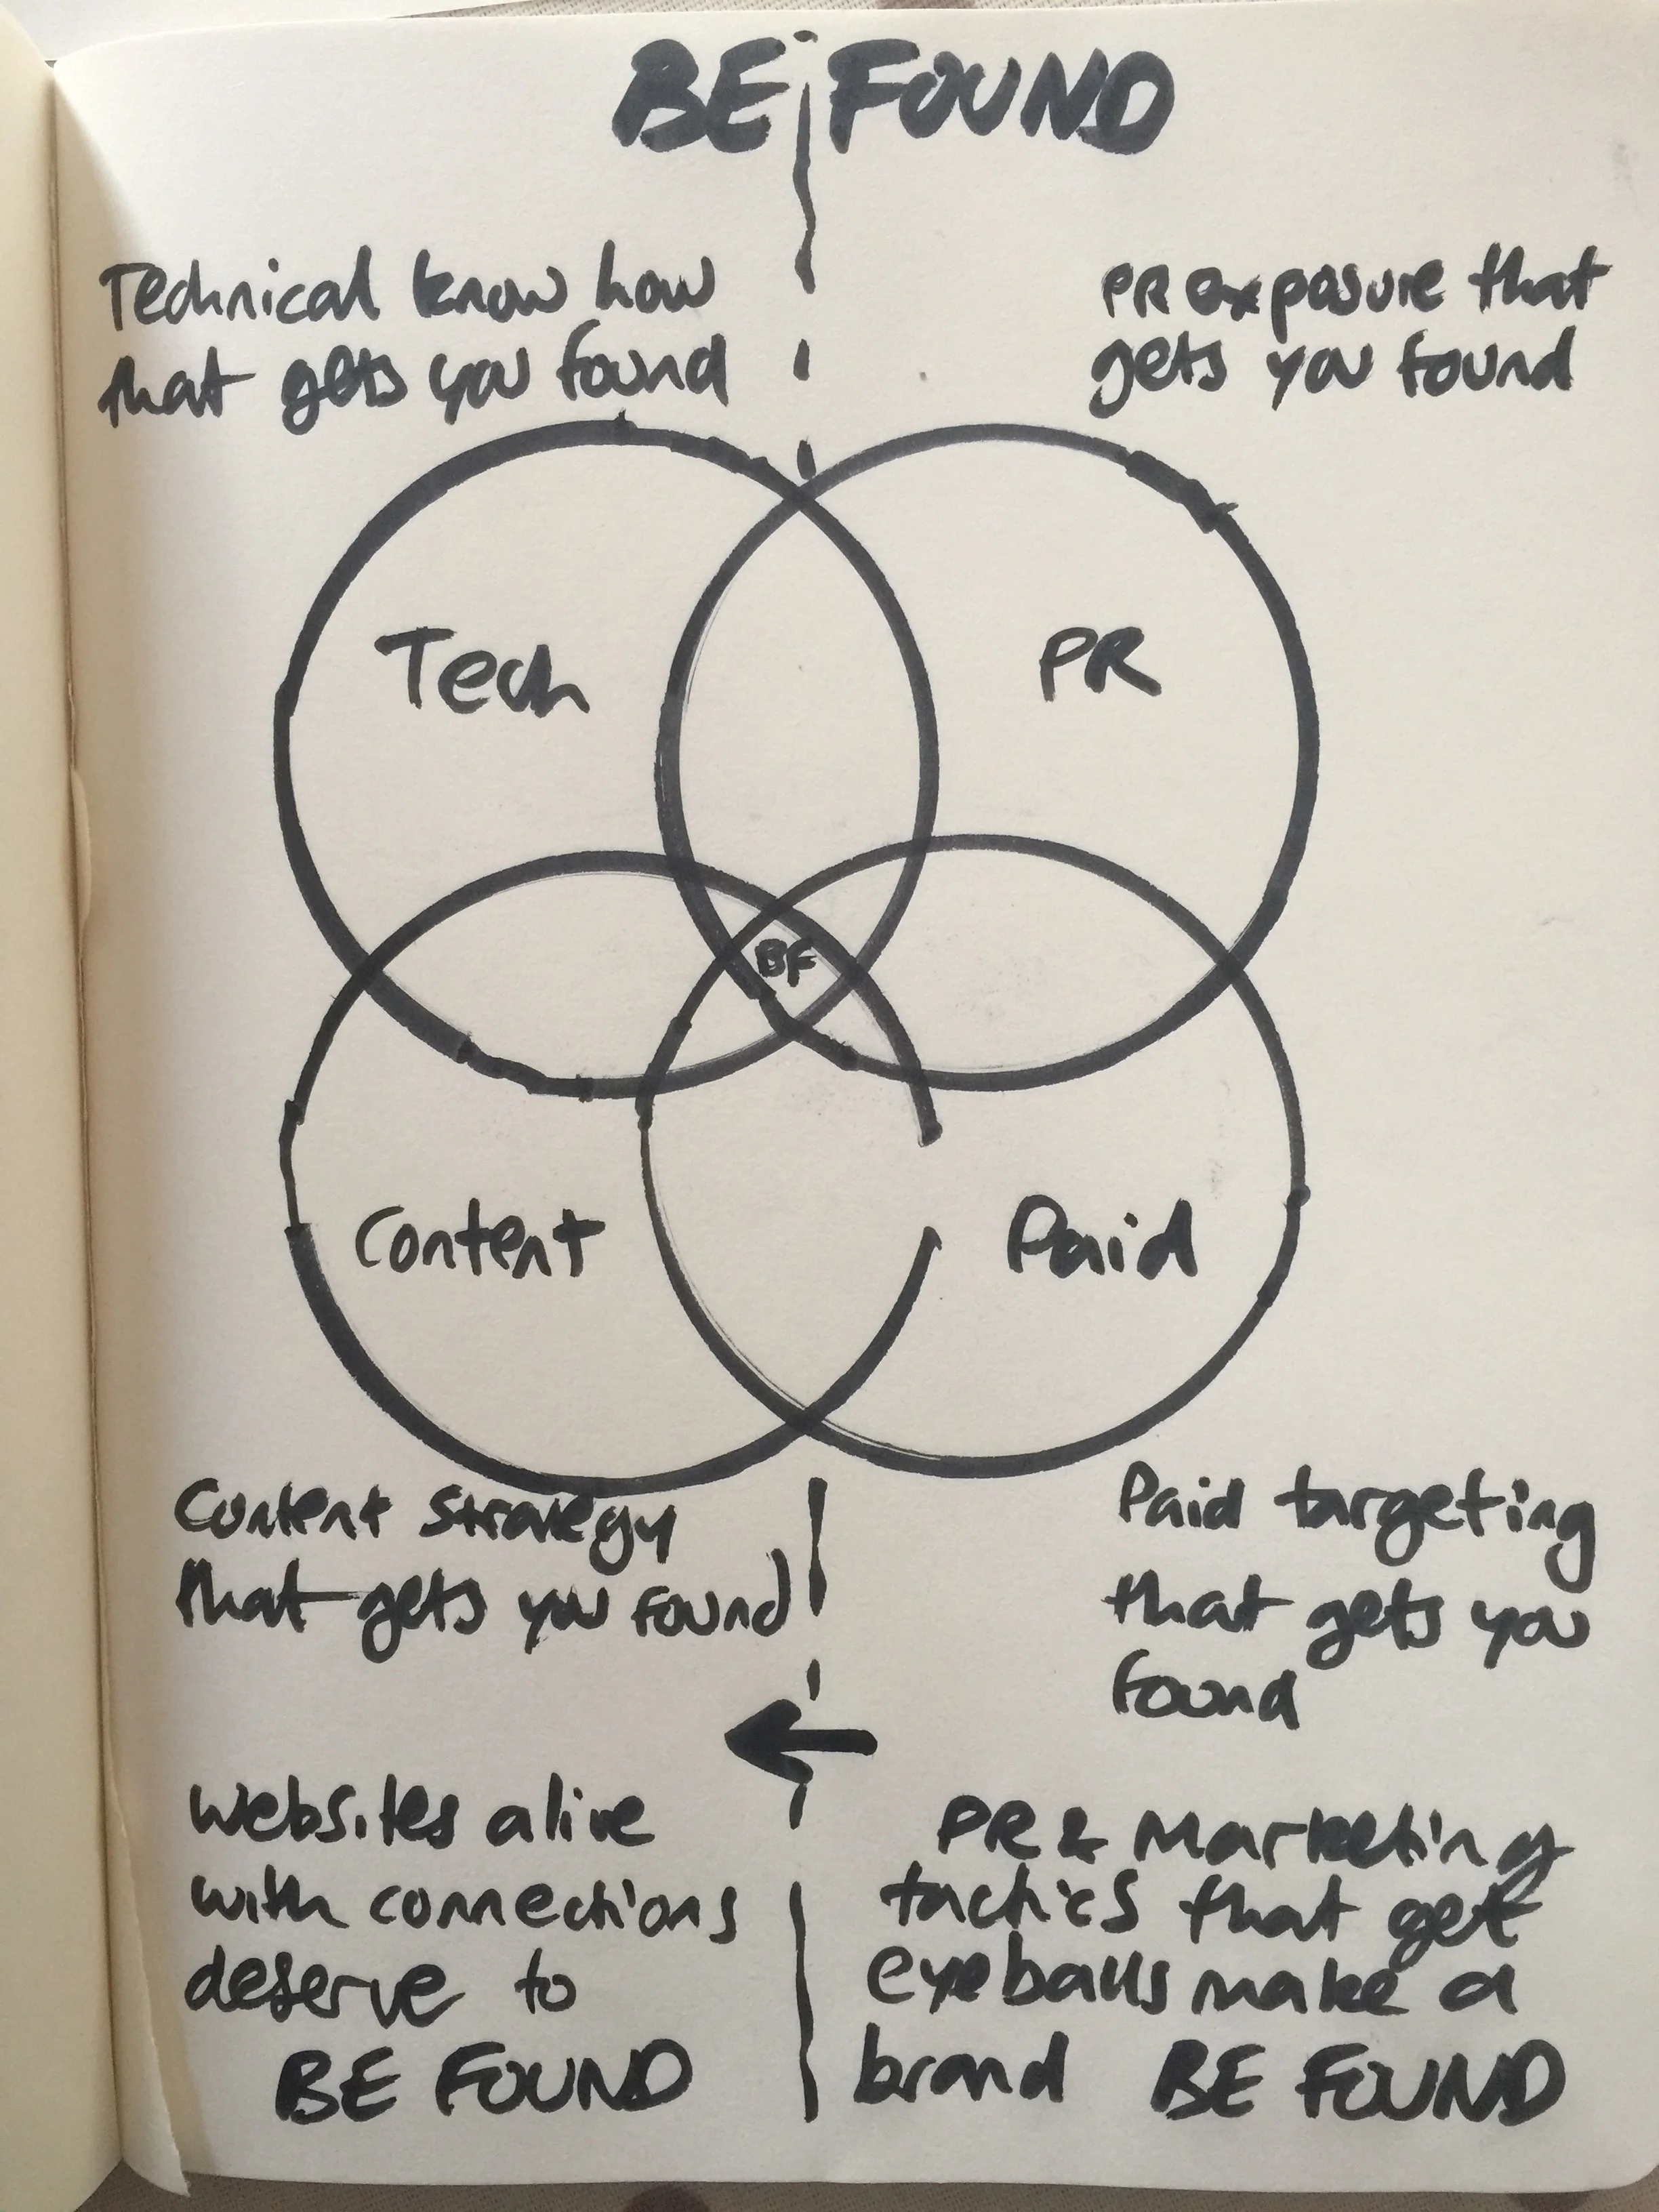 BE FOUND
Technical know how
that gets you found
PR exposure that
gets you found
Tech
PR
BF
Content
Paid
Content strategy
that gets you found
Paid targeting
that gets you
found
Websites alive
with connections
deserve to
BE FOUND
PR & Marketing
tactics that get
eyeballs make a
brand BE FOUND